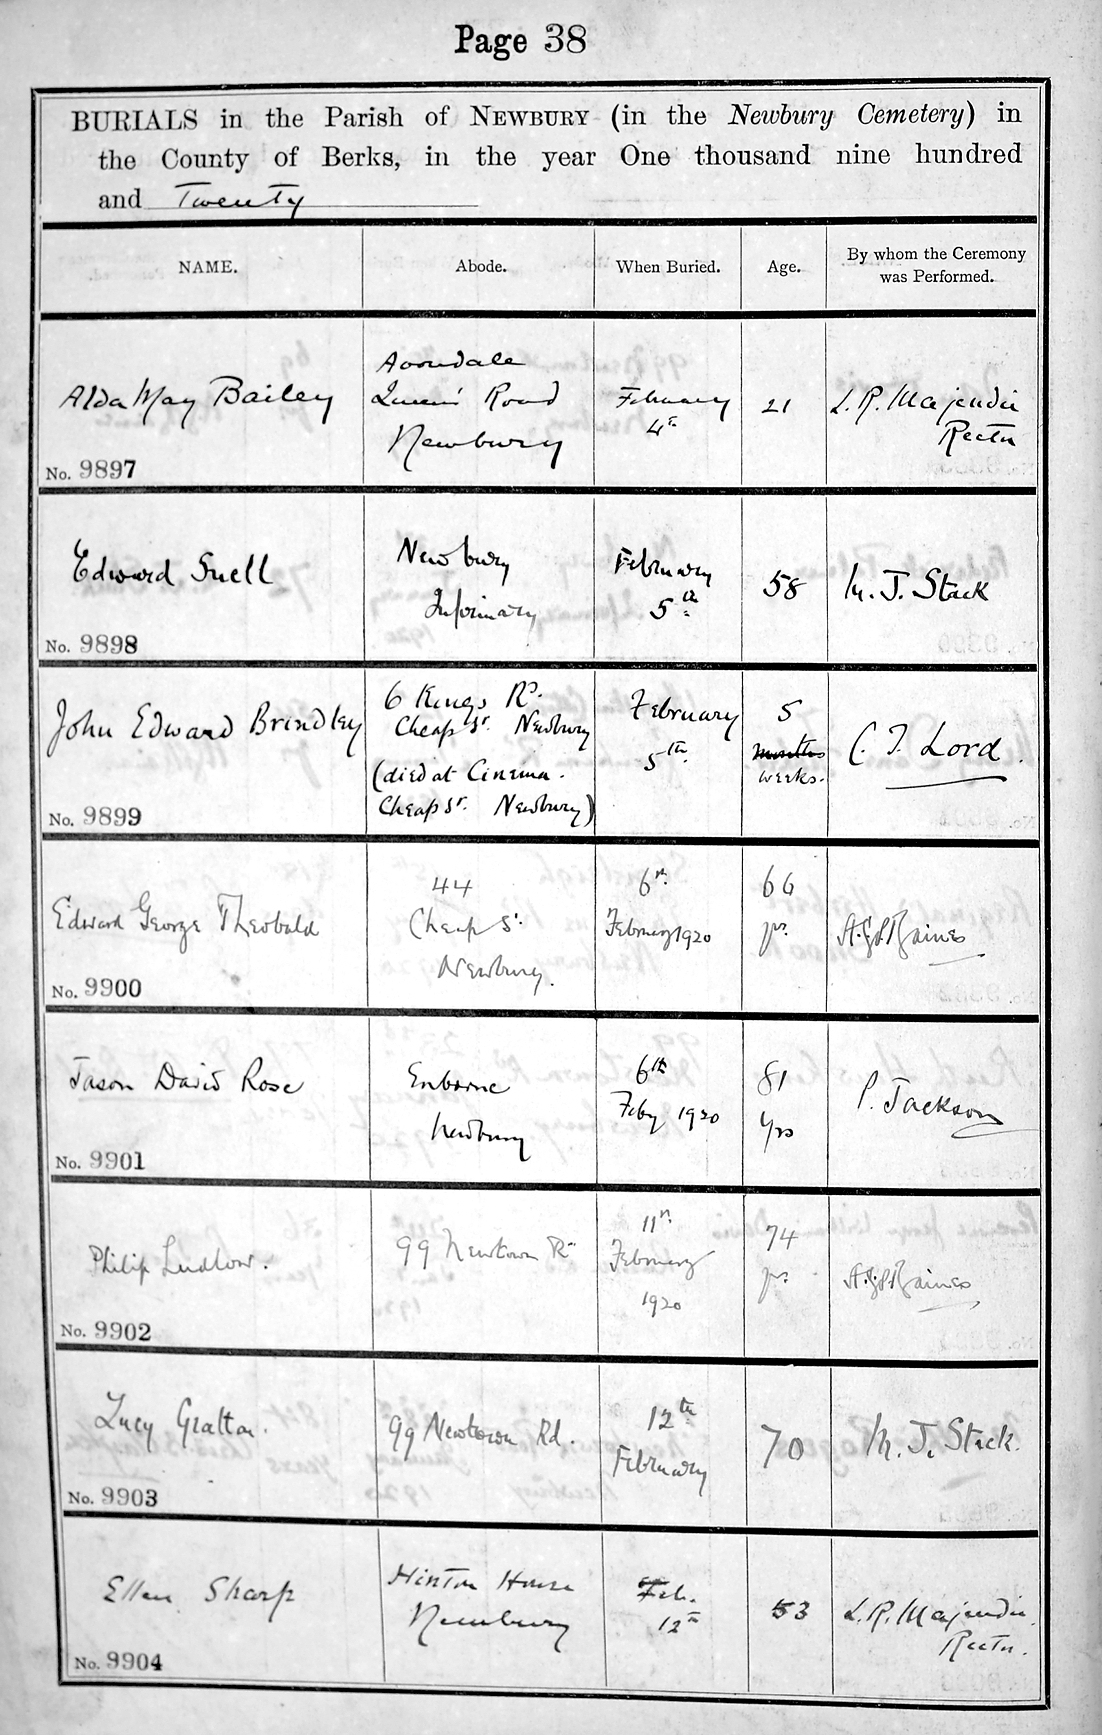 Page 38
BURIALS in the Parish of NEWBURY (in the Newbury Cemetery) in
the County of Berks, in the year One thousand nine hundred
and Twenty
NAME.
Abode.
When Buried.
Age.
By whom the Ceremony
was Performed.
Alda May Bailey
No. 9897
Avondale
Queen's Road
Newbury
February
4th
21
L.R. Majendie
Rector
Edward Snell
No. 9898
Newbury
Infirmary
February
5th
58
M. J. Stack
John Edward Brindley
No. 9899
6 Kings Rd.
Cheap St. Newbury
(died at Cinema.
Cheap St. Newbury)
February
5th
5
months
weeks.
C. T. Lord.
Edward George Theobald
No. 9900
44
Cheap St.
Newbury.
6th
February 1920
66
yrs.
Jason David Rose
No. 9901
Enborne
Newbury
6th
Feby 1920
81
yrs
P. Jackson
Philip Ludlow.
No. 9902
99 Newtown Rd
11th
February
1920
74
yrs.
Lucy Gratton.
No. 9903
99 Newtown Rd.
12th
February
70
M. J. Stack.
Ellen Sharp
No. 9904
Hinton House
Newbury
Feb.
12th
53
L.R. Majendie
Rector.